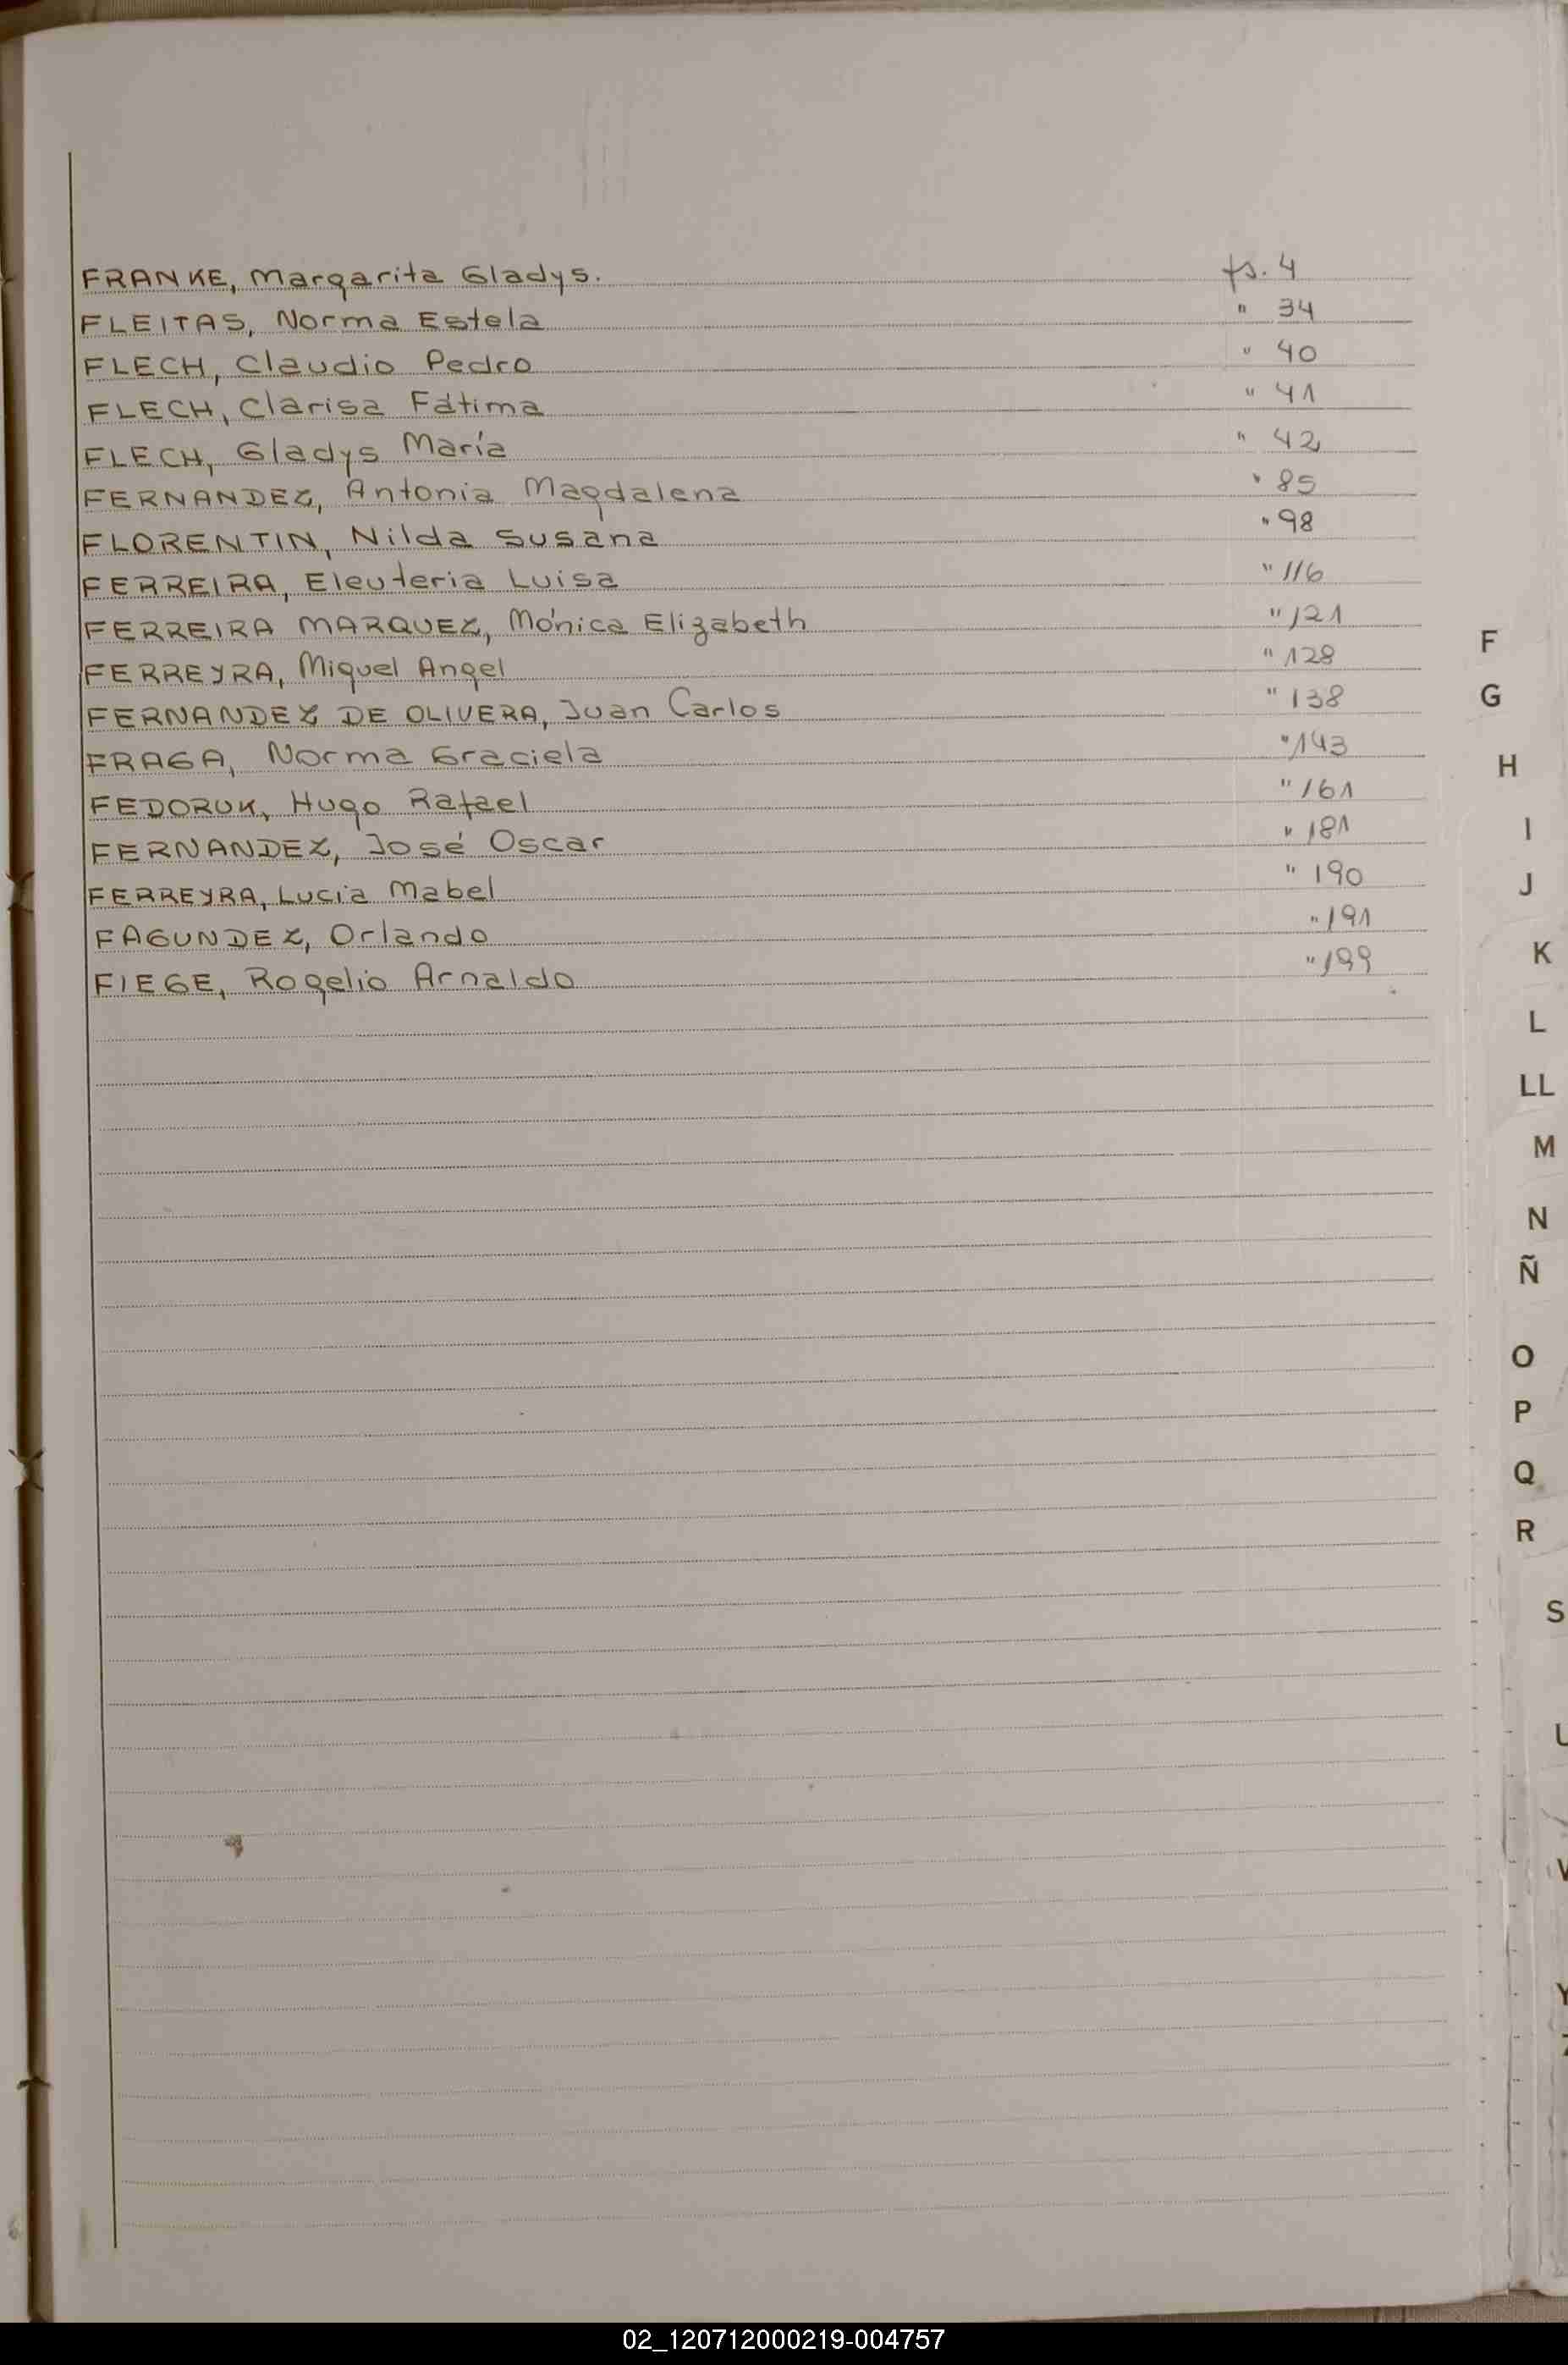 FRANKE, Margarita Gladys. fs. 4
FLEITAS, Norma Estela " 34
FLECH, Claudio Pedro " 40
FLECH, Clarisa Fátima " 41
FLECH, Gladys María " 42
FERNANDEZ, Antonia Magdalena " 85
FLORENTIN, Nilda Susana " 98
FERREIRA, Eleuteria Luisa " 116
FERREIRA MARQUEZ, Mónica Elizabeth " 121
FERREYRA, Miguel Angel " 128
FERNANDEZ DE OLIVERA, Juan Carlos " 138
FRAGA, Norma Graciela " 143
FEDORUK, Hugo Rafael " 161
FERNANDEZ, José Oscar " 181
FERREYRA, Lucia Mabel " 190
FAGUNDEZ, Orlando " 191
FIEGE, Rogelio Arnaldo " 199
F
G
H
I
J
K
L
LL
M
N
Ñ
O
P
Q
R
S
U
V
Y
02_120712000219-004757